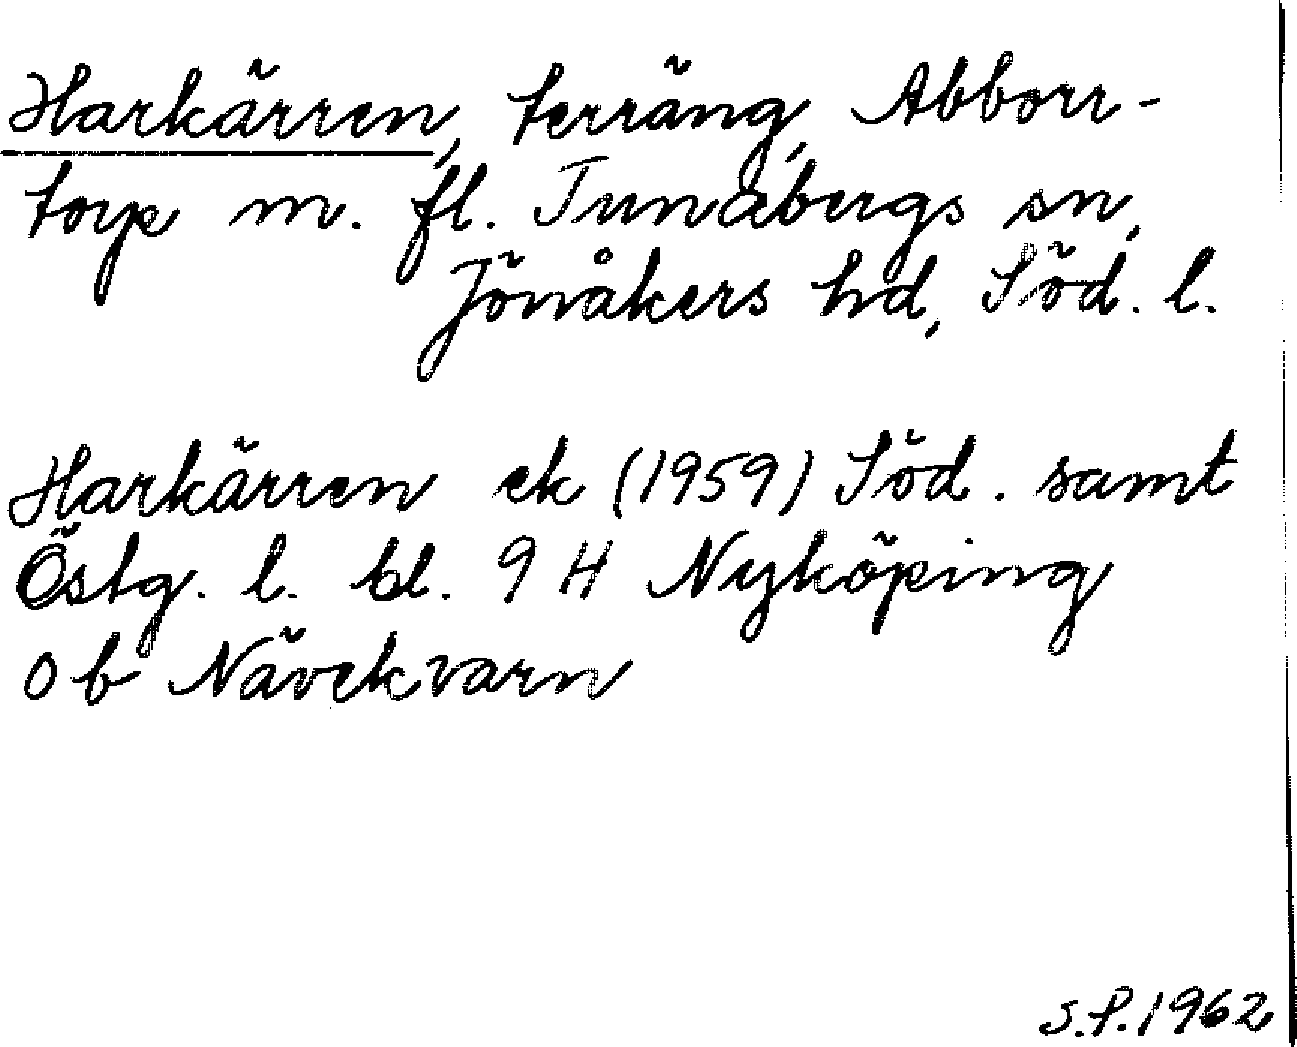 Harkärren, terräng, Abborr-
torp m. fl. Tunabergs sn,
Jönåkers hd, Söd. l.
Harkärren ek (1959) Söd. samt
Östg. l. bl. 9 H Nyköping
0 b Nävekvarn
S.P. 1962